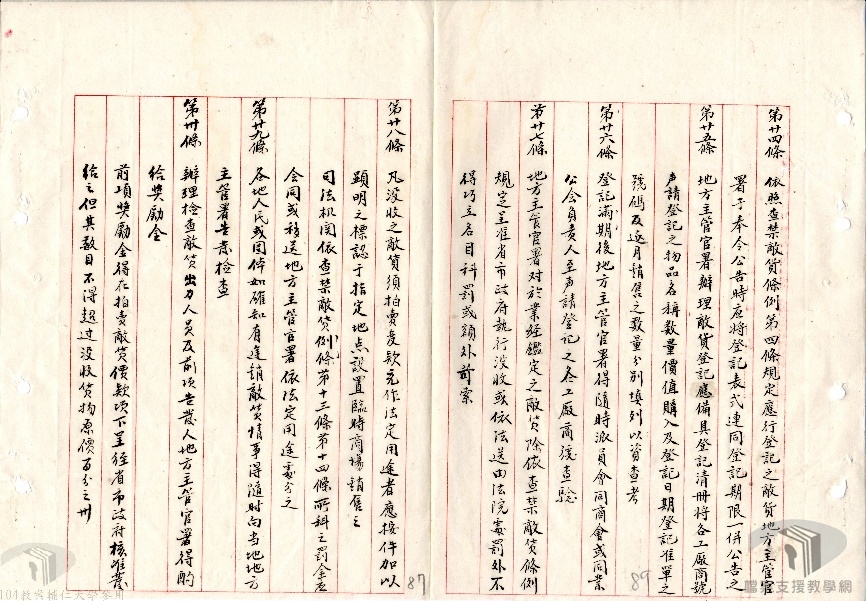 第廿四條　依照查禁敵貨條例第四條規定應行登記之敵貨地方主管官
署于奉令公告時应將登記表式連同登記期限一併公告之
第廿五條　地方主管官署辦理敵貨登記應備具登記清冊將各工廠商號
声請登記之物品名稱数量價值購入及登記日期登記准單之
號碼及逐月銷售之数量分别填列以資查考
第廿六條　登記滿期後地方主管官署得隨時派員會同商會或同業
公會負責人至声請登記之各工廠商號查驗
第廿七條　地方主管官署对於業經鑑定之敵貨除依查禁敵貨條例
規定呈准省市政府執行没收或依法送由法院處罰外不
得巧立名目科罰或額外需索
89
第廿八條　凡没收之敵貨須拍賣變款充作法定用途者應按件加以
顕明之標認于指定地点設置臨時商場銷售之
司法机関依查禁敵貨例條第十三條第十四條所科之罰金应
会同或移送地方主管官署依法定用途處分之
第廿九條　各地人民或团体如確知有運銷敵貨情事得隨时向当地地方
主管署告发檢查
第卅條　辦理檢查敵貨出力人員及前項告发人地方主管官署得酌
给奬勵金
前項奬勵金得在拍賣敵貨價款項下呈經省市政府核准發
给之但其数目不得超过没收貨物原價百分之卅
87
檔案支援教學網
104教育輔仁大學参用